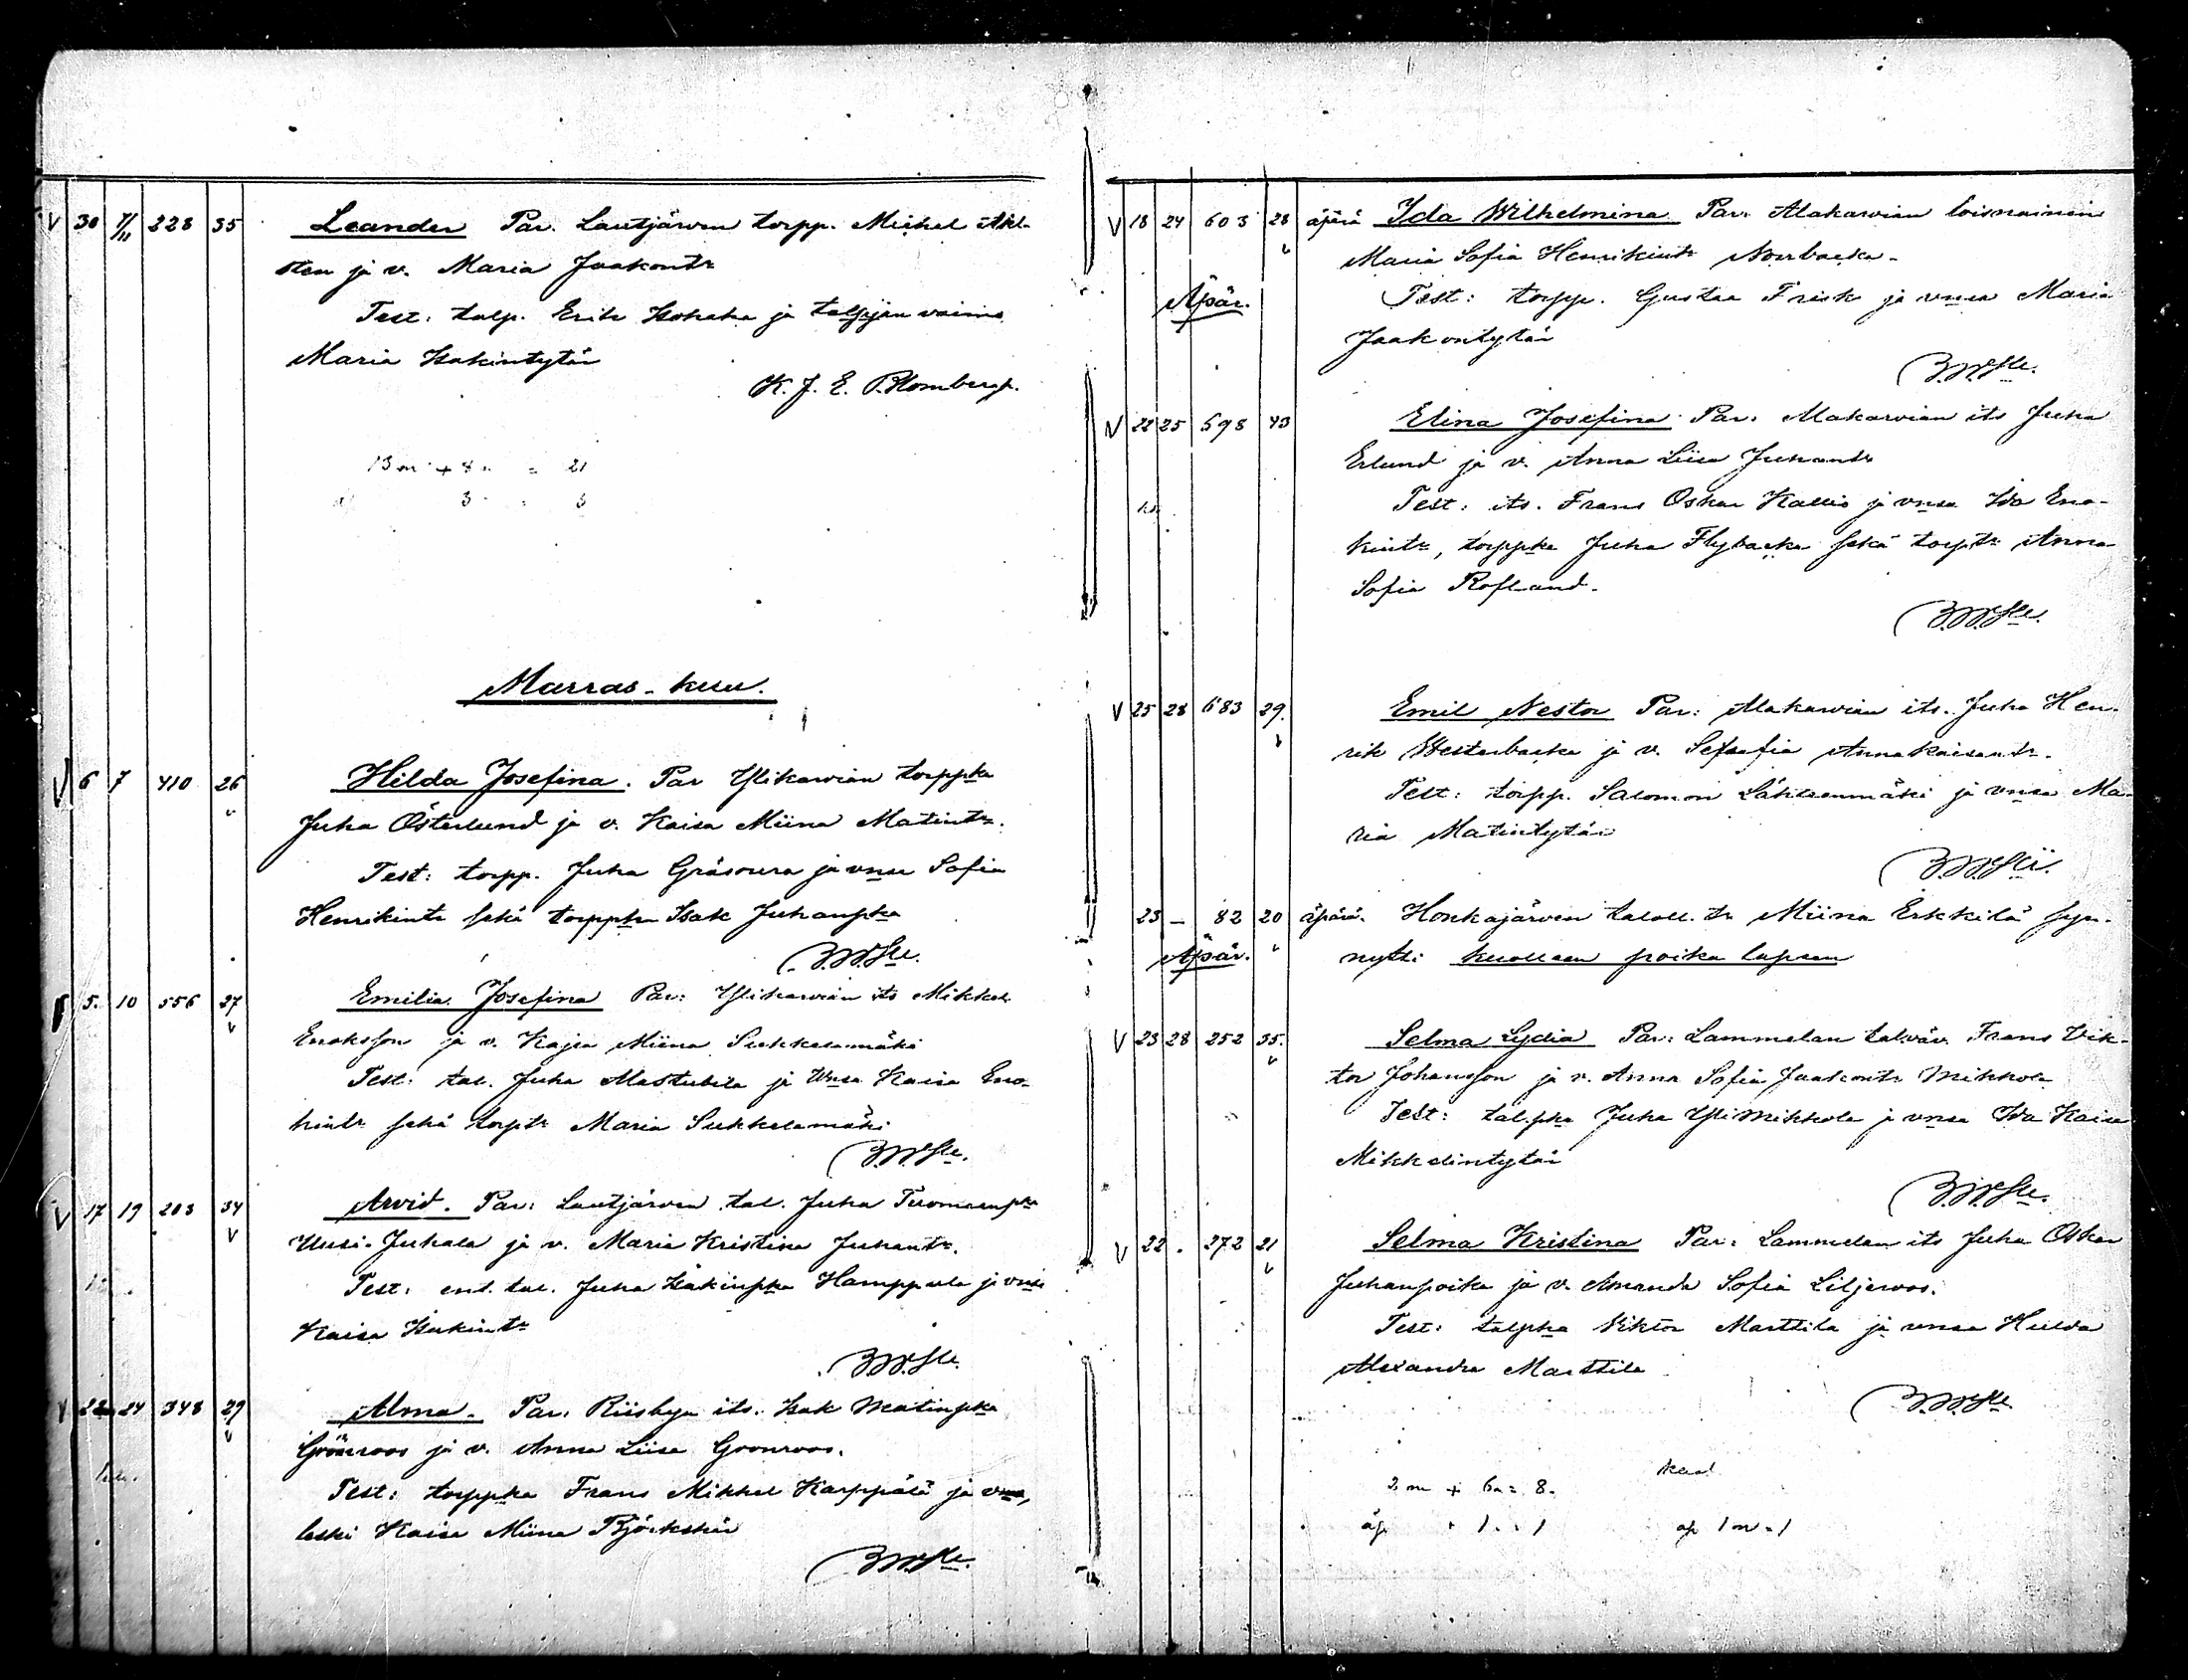 V 30 7/11 228 35 Leander Par. Lautjärven torpp. Mickel Ahl-
sten ja v. Maria Jaakontr
Test: talp. Erik Isohaka ja talpijan vaimo
Maria Isakintytär
K. J. E. Blomberg.
13 m + 8 = 21
3 3
Marras-kuu.
V 6 7 410 26 Hilda Josefina. Par Ylikarvian torppka
Juha Österlund ja v. Kaisa Miina Matintr.
Test: torpp. Juha Gräsoura ja vnsa Sofia
Henrikintr sekä torppka Isak Juhanpka
5. 10 556 27 Emilia Josefina Par: Ylikarvian its Mikkel
Enoksson ja v. Kajsa Miina Sukkelamäki
Test: tal. Juha Mastubila ja Vnsa Kaisa Eno-
kintr sekä torptr Maria Sukkelamäki
V 17 19 203 34 Arvid. Par: Lautjärven tal. Juha Tuomaanpka
Uusi-Juhala ja v. Maria Kristina Juhantr.
Test: ent. tal. Juha Isakinpka Hamppula ja vnsa
Kaisa Isakintr
V 22 24 348 29 Alma. Par: Riisbyn its. Isak Matinpka
Grönroos ja v. Anna Liisa Gronroos.
Test: torppka Frans Mikkel Karppälä ja
leski Kaisa Miina Björkskär
V 18 24 603 28 äpärä Ida Wilhelmina Par: Alakarvian loisnainen
Maria Sofia Henrikintr Norrbacka.
Äpär. Test: torpp. Gustaa Frisk ja vnsa Maria
Jaakontytär
V 22 25 598 43 Elina Josefina Par: Alakarvian its Juha
Erlund ja v. Anna Liisa Juhantr
Test: its. Frans Oskar Kallio ja vnsa Ida Eno-
kintr, torppka Juha Flybacka sekä torptr Anna
Sofia Roslund.
V 25 28 683 29. Emil Nestor Par: Alakarvian its. Juha Hen-
rik Westerbacka ja v. Annakaisantr.
Test: torpp. Salomon Lähteenmäki ja vnsa Ma-
ria Matintytär
23 — 82 20 äpärä. Honkajärven taloll. tr Miina Erkkilä syn-
Äpär. nytti kuolleen poika lapsen
V 23 28 252 35. Selma Lydia Par: Lammelan talväv. Frans Vik-
tor Johansson ja v. Anna Sofia Jaakontr Mikkola
Test: talpka Juha Ylimikkola ja vnsa Ida Kaisa
Mikkelintytär
V 22 . 272 21 Selma Kristina Par: Lammelan its Juha Oskar
Juhanpoika ja v. Amanda Sofia Liljeroos.
Test: talpka Viktor Marttila ja vnsa Hulda
Alexandra Marttila
2 m + 6 = 8.
äp 1 1 äp 1 m = 1